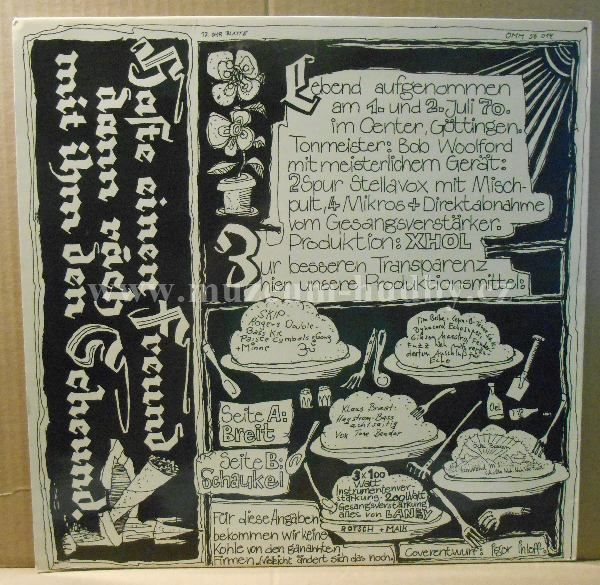 12. OHR PLATTE
OMM 56 014
Haste einen Freund
dann rauch
mit ihm den Scheund.
Lebend aufgenommen
am 1. und 2. Juli 70.
im Center, Göttingen.
Tonmeister: Bob Woolford
mit meisterlichem Gerät:
2 Spur Stellavox mit Misch-
pult, 4 Mikros + Direktabnahme
vom Gesangsverstärker.
Produktion: XHOL
Zur besseren Transparenz
hier unsere Produktionsmittel:
www.muzeum-hudby.cz
SKIP:
Rogers Double-
Bass Kit
Paiste Cymbals + Gong
+ Minne
Echo
Seite A:
Breit
Seite B:
Schaukel
Klaus Briest:
Hagstrom-Bass
achtsaitig
Vox Tone Bender
Oel
3 x 100
Watt
Instrumentenver-
stärkung. 200 Watt
Gesangsverstärkung
alles von LANEY
BOTSCH + MAIK
Für diese Angaben
bekommen wir keine
Kohle von den genannten
Firmen. (Vielleicht ändert sich das noch)
Coverentwurf: